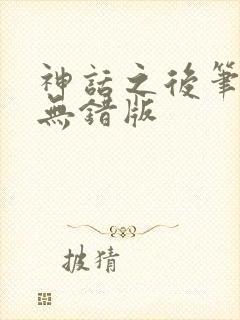 神話之後筆
無錯版
披猜